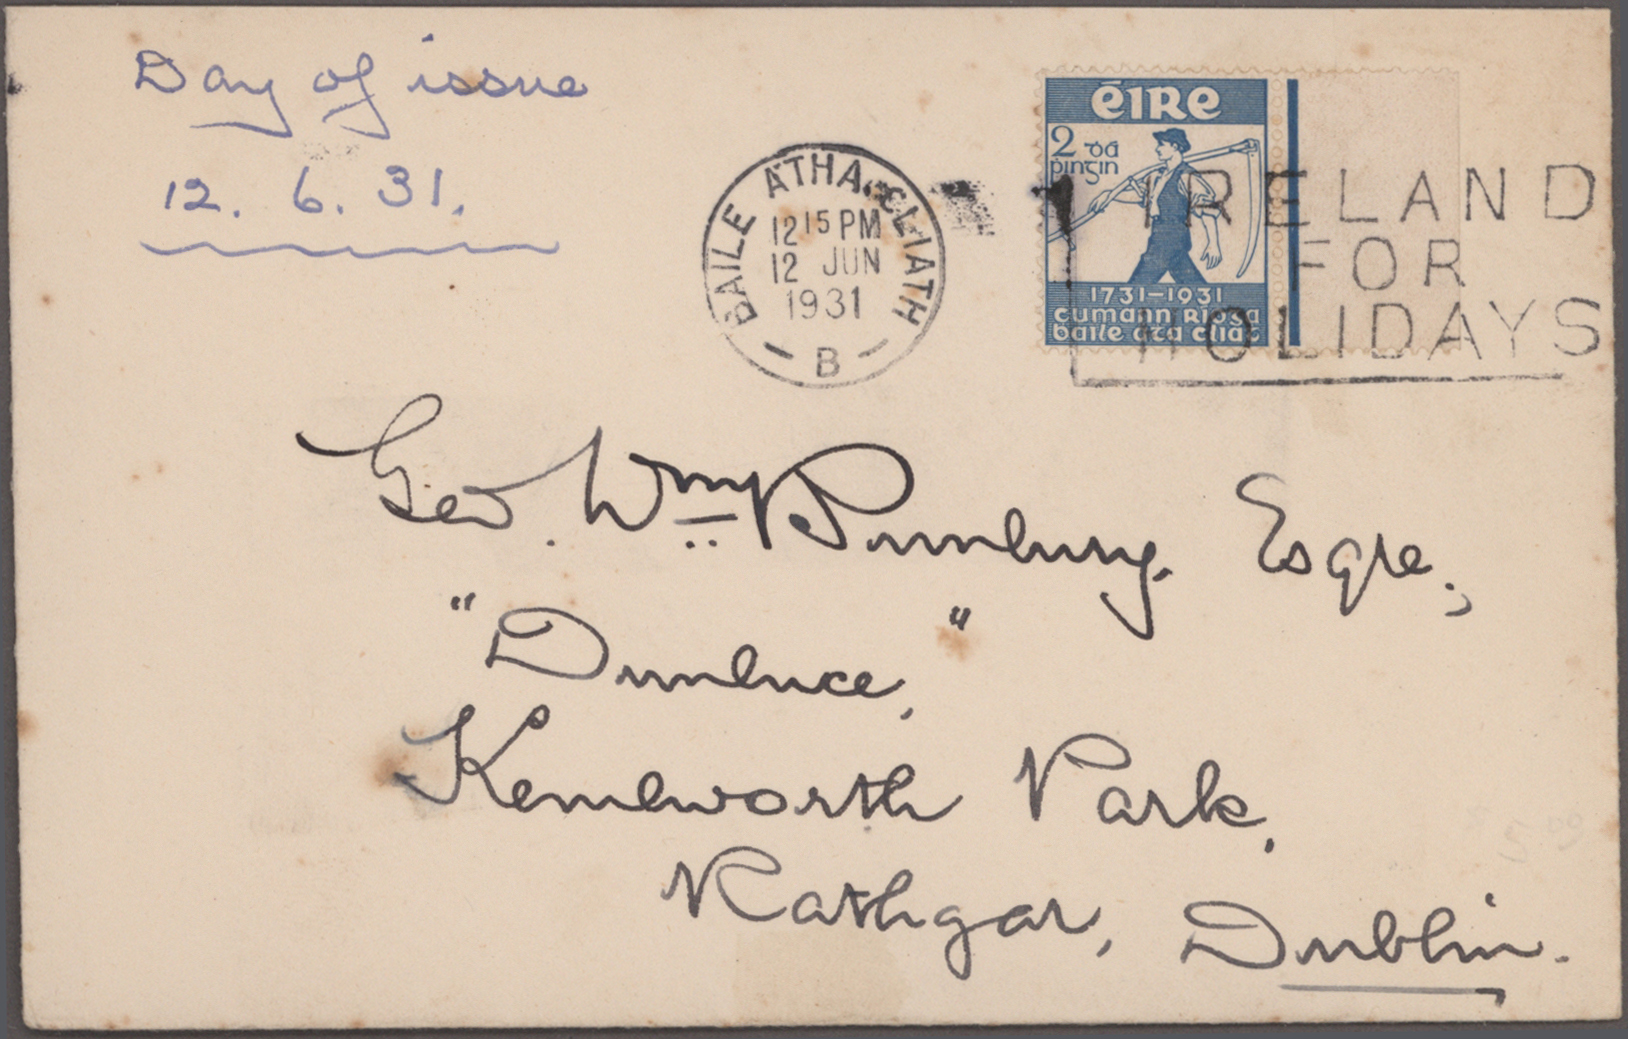 Day of issue
12. 6. 31.
BAILE ÁTHA CLIATH
12 15 PM
12 JUN
1931
B
éIRe
2 ꝺá
pingin
1731-1931
cumann Ríoga
baile áta cliat
IRELAND
FOR
HOLIDAYS
Geo. Wm Bunbury. Esqre.,
"Dunluce,"
Kenilworth Park,
Rathgar, Dublin.